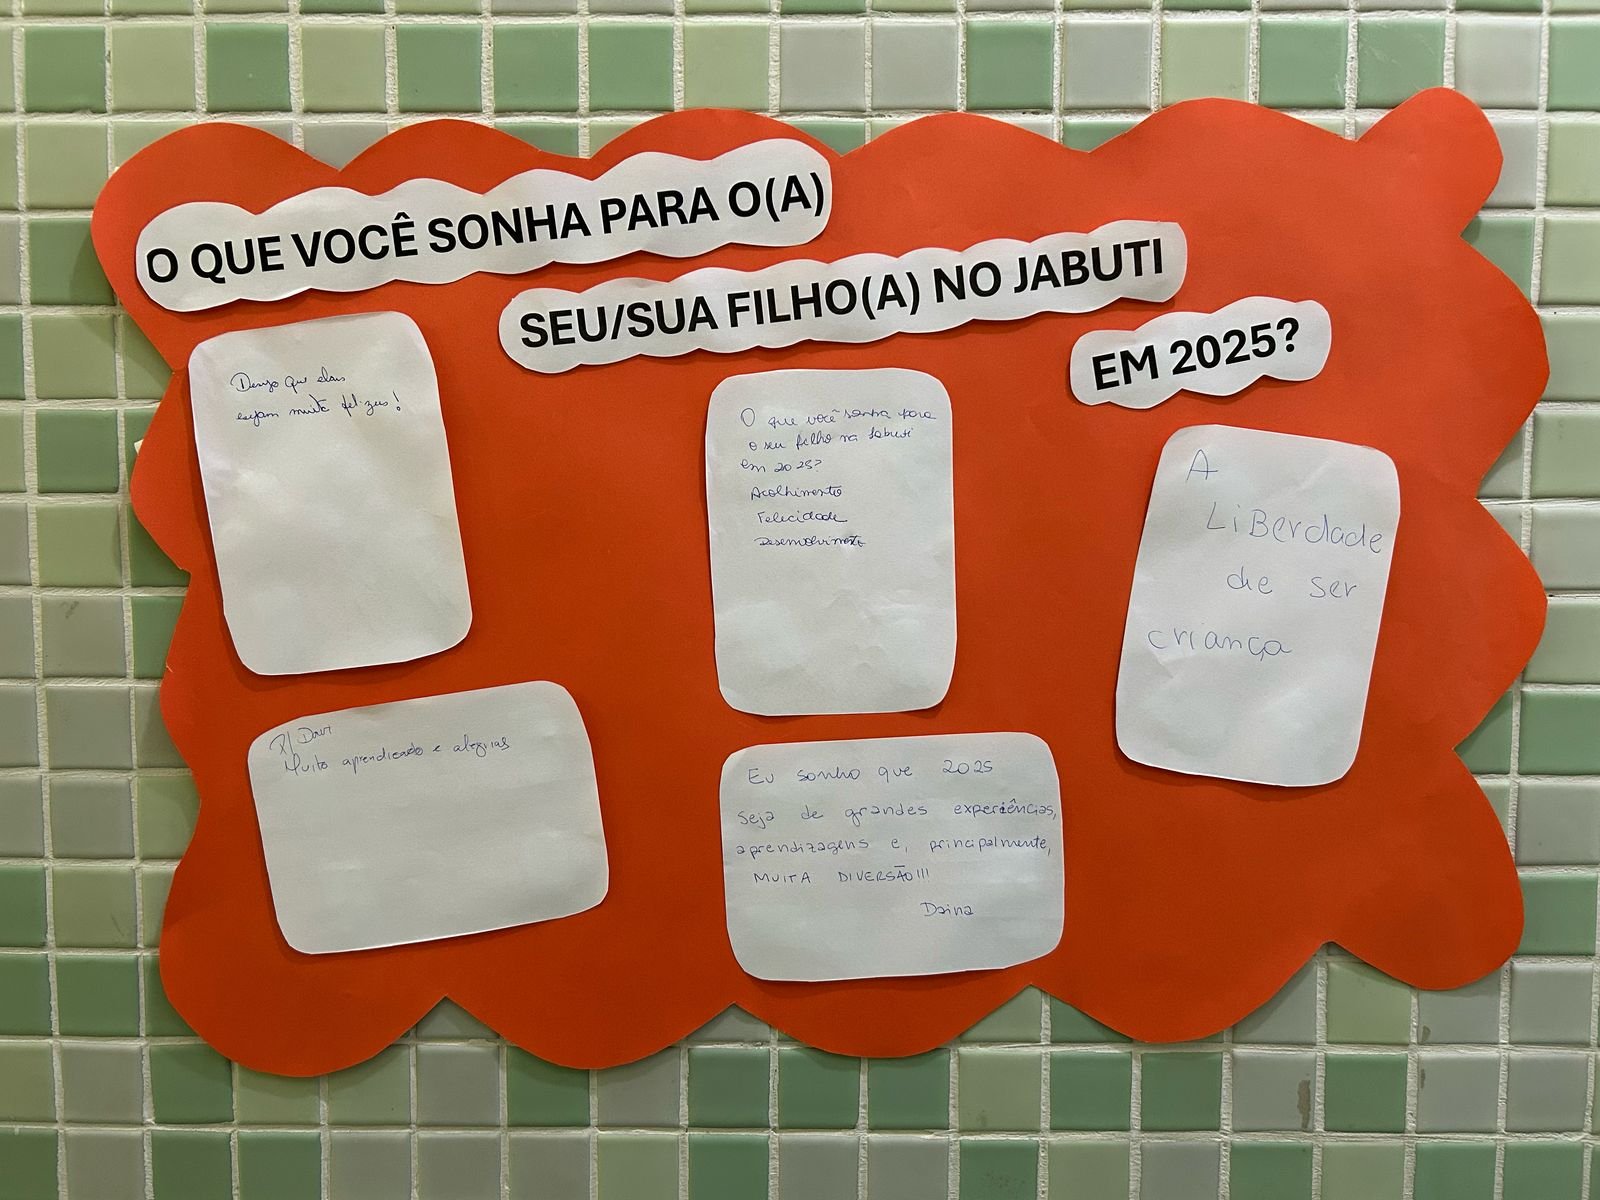 O QUE VOCÊ SONHA PARA O(A)
SEU/SUA FILHO(A) NO JABUTI
EM 2025?
Desejo que elas
sejam muito felizes!
O que você sonha para
o seu filho na Jabuti
em 2025?
Acolhimento
Felicidade
Desenvolvimento
A
LiBerdade
de ser
criança
P/ Davi
Muito aprendizado e alegrias
Eu sonho que 2025
seja de grandes experiências,
aprendizagens e, principalmente,
MUITA DIVERSÃO!!!
Daina